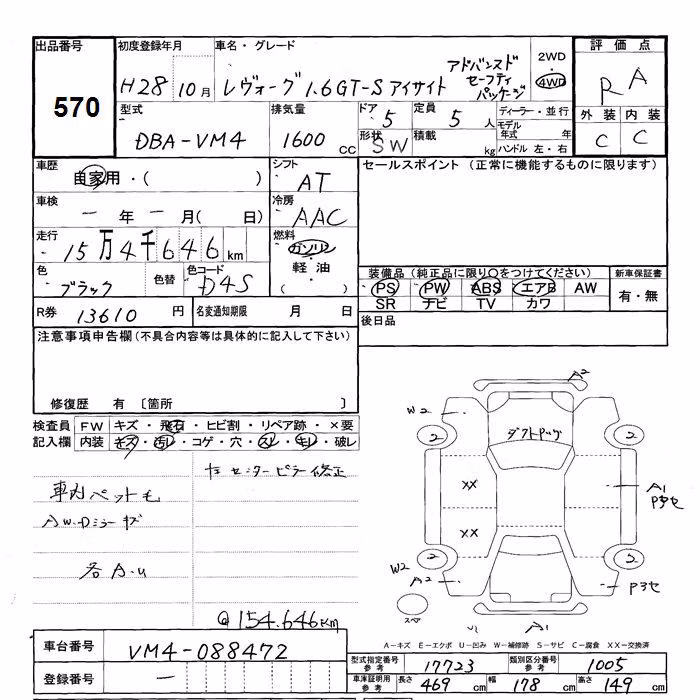 出品番号
570
初度登録年月
H28 10月
車名・グレード
レヴォーグ 1.6GT-S アイサイト
アドバンスド
セーフティ
パッケージ
2WD
4WD
評価点
RA
外装 内装
C C
型式
DBA-VM4
排気量
1600 CC
ドア 5
形状 SW
定員 5 人
積載 kg
ディーラー・並行
モデル
年式 年
ハンドル 左・右
車歴
自家用・( )
シフト
AT
セールスポイント (正常に機能するものに限ります)
車検
ー年ー月( 日)
冷房
AAC
走行
15万4千646km
燃料
ガソリン
・
軽油
( )
色
ブラック
色替
色コード
D4S
装備品(純正品に限り○をつけてください)
PS PW ABS エアB AW
SR ナビ TV カワ
新車保証書
有・無
R券 13610 円
名変通知期限 月 日
後日品
注意事項申告欄(不具合内容等は具体的に記入して下さい)
修復歴 有 〔箇所
検査員
記入欄
FW キズ・飛石・ヒビ割・リペア跡・×要
内装 キズ・汚レ・コゲ・穴・スレ・キレ・破レ
左センターピラー修正
車内ペット毛
AW・Dミラーキズ
各A・U
@154.646Km
A2
W2
2
2
ダクトパッグ
XX
A1
XX
W2
2
2
A2
スペア
A1
A-キズ E-エクボ U-凹み W-補修跡 S-サビ C-腐食 XX-交換済
車台番号 VM4-088472
登録番号 ー
型式指定番号
参考
17723
類別区分番号
参考
1005
車庫証明用
参考
長さ 469 cm 幅 178 cm 高さ 149 cm